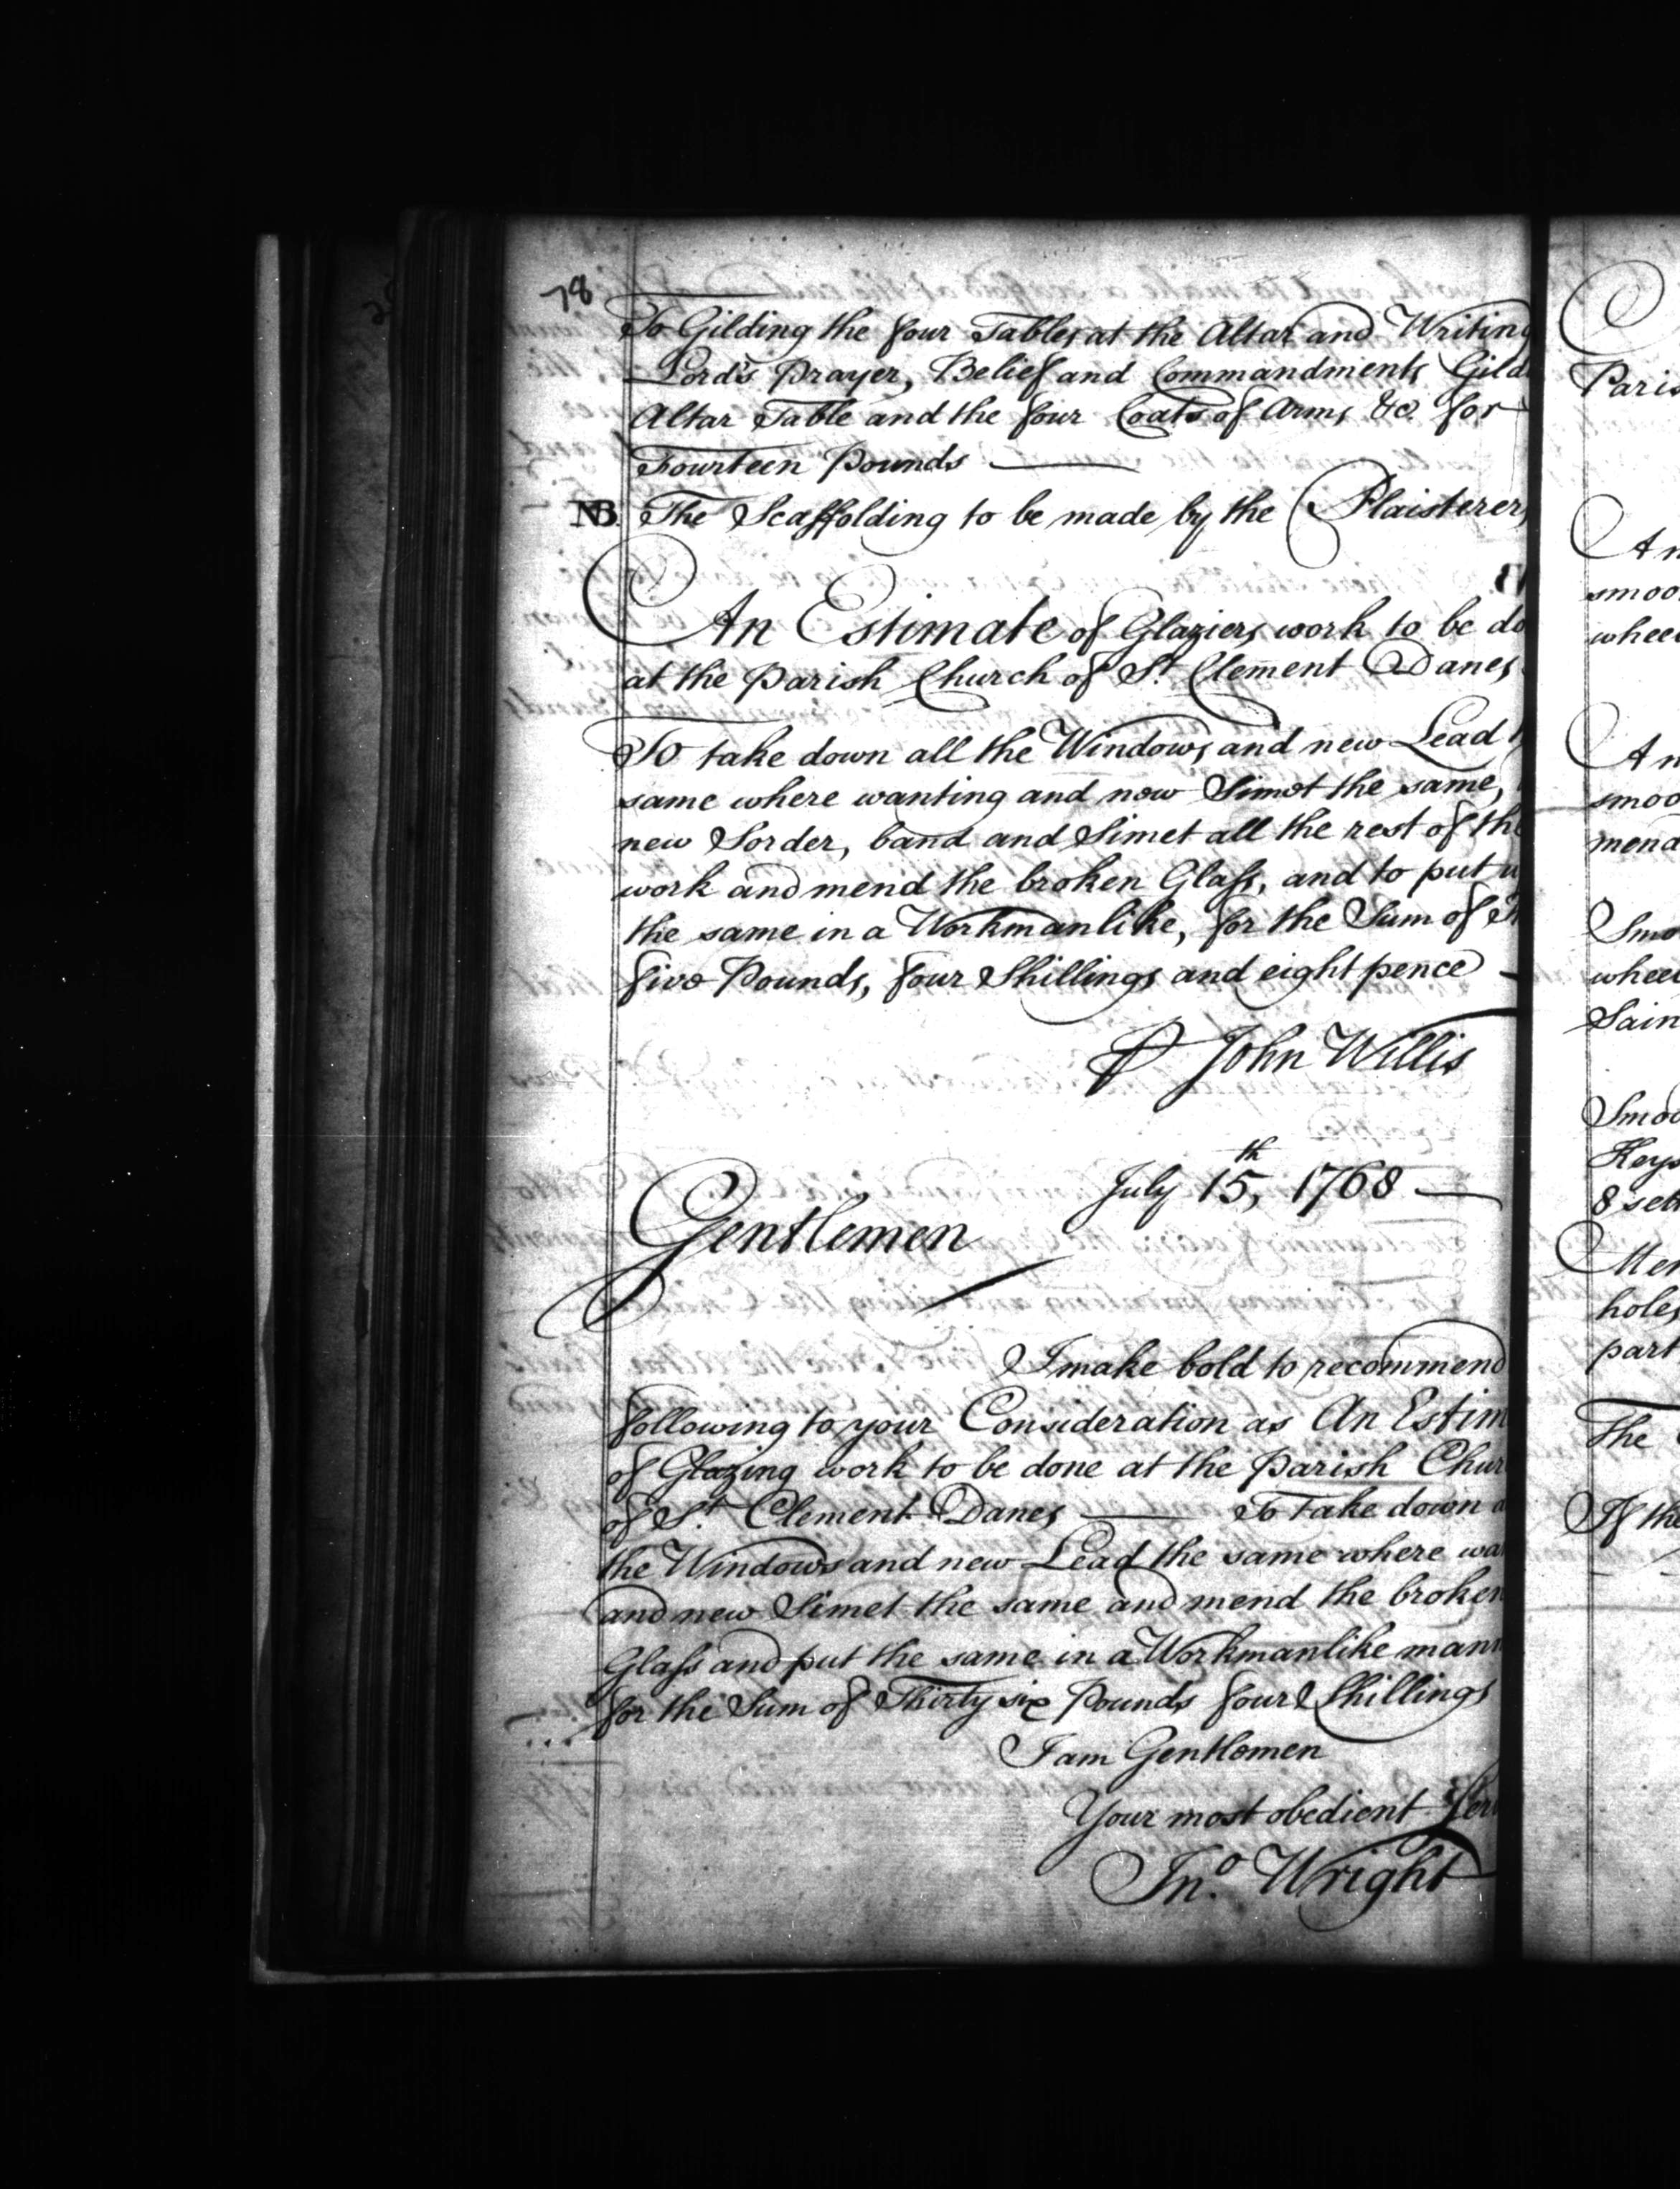 78
To Gilding the four Tables at the Altar and Writing
Lord's Prayer, Belief and Commandments Gild
Altar Table and the four Coats of Arms &c for
Fourteen Pounds
NB. The Scaffolding to be made by the Plaisterers
An Estimate of Glaziers work to be do
at the Parish Church of St. Clement Danes
To take down all the Windows and new Lead t
same where wanting and new Simet the same,
new Sorder, band and Simet all the rest of the
work and mend the broken Glass, and to put u
the same in a Workmanlike, for the Sum of
five Pounds, four Shillings and eight pence
P John Willis
July 15th, 1768
Gentlemen
I make bold to recommend
following to your Consideration as An Estim
of Glazing work to be done at the Parish Chur
of St. Clement Danes To take down a
the Windows and new Lead the same where wa
and new Simet the same and mend the broken
Glass and put the same in a Workmanlike mann
for the Sum of Thirty six Pounds four Shillings
I am Gentlemen
Your most obedient Ser
Jno. Wright
Paris
An
smoo
whee
An
smoo
mend
Smo
wheel
Sain
Smoo
Keys
8 set
Men
holes
part
The
If the